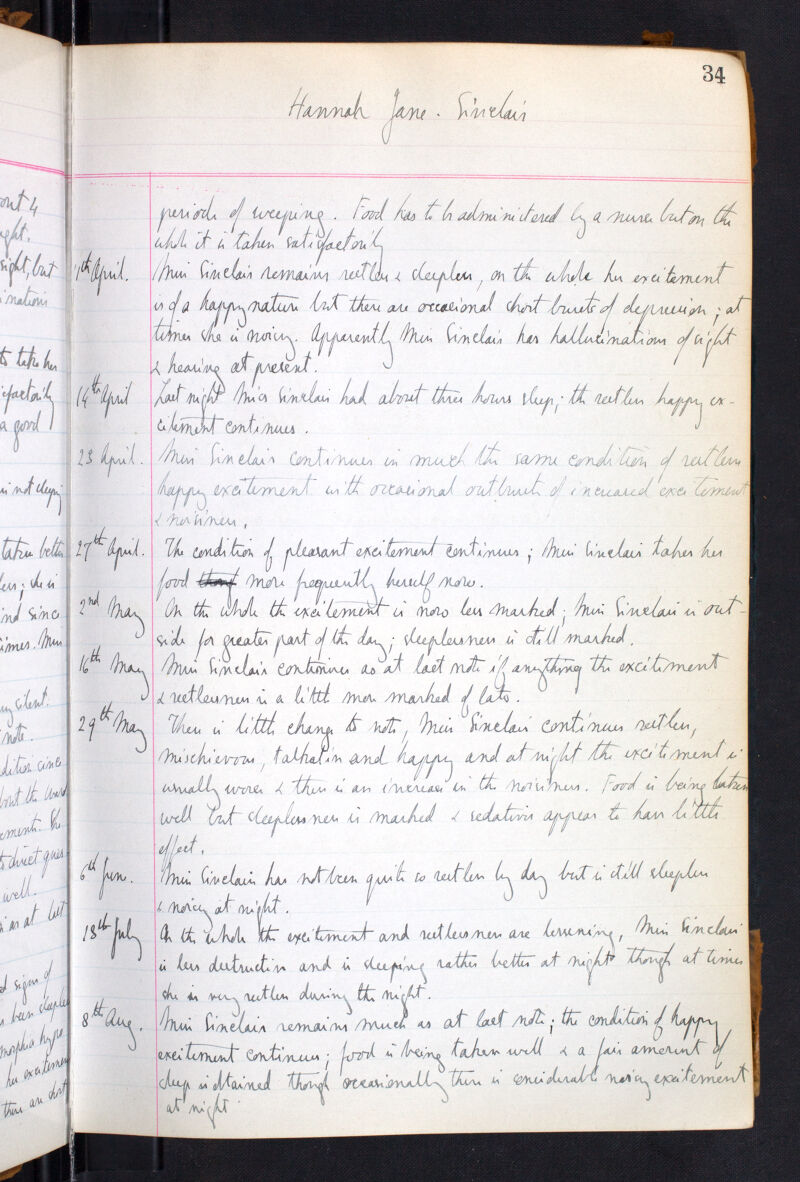 34
Hannah Jane. Sinclair
periods of weeping. Food has to be administered by a nurse but on the
whole it is taken satisfactorily
7th April. Miss Sinclair remains restless & sleepless, on the whole her excitement
is of a happy nature but there are occasional short bursts of depression; at
times she is noisy. Apparently Miss Sinclair has hallucinations of sight
& hearing at present.
14th April Last night Miss Sinclair had about three hours sleep; the restless happy ex-
citement continues.
23 April. Miss Sinclair continues in much the same condition of restless
happy excitement with occasional outbursts of increased excitement
& noisiness.
27th April. The condition of pleasant excitement continues; Miss Sinclair takes her
food more frequently herself now.
2nd May On the whole the excitement is now less marked; Miss Sinclair is out-
side for greater part of the day; sleeplessness is still marked.
16th May Miss Sinclair continues as at last note if anything the excitement
& restlessness is a little more marked of late.
29th May There is little change to note, Miss Sinclair continues restless,
mischievous, talkative and happy and at night the excitement is
usually worse & there is an increase in the noisiness. Food is being taken
well but sleeplessness is marked & sedatives appear to have little
effect.
6th June. Miss Sinclair has not been quite so restless by day but is still sleepless
& noisy at night.
13th July On the whole the excitement and restlessness are lessening, Miss Sinclair
is less destructive and is sleeping rather better at night though at times
she is very restless during the night.
8th Aug. Miss Sinclair remains much as at last note; the condition of happy
excitement continues; food is being taken well & a fair amount of
sleep is obtained though occasionally there is considerable noisy excitement
at night